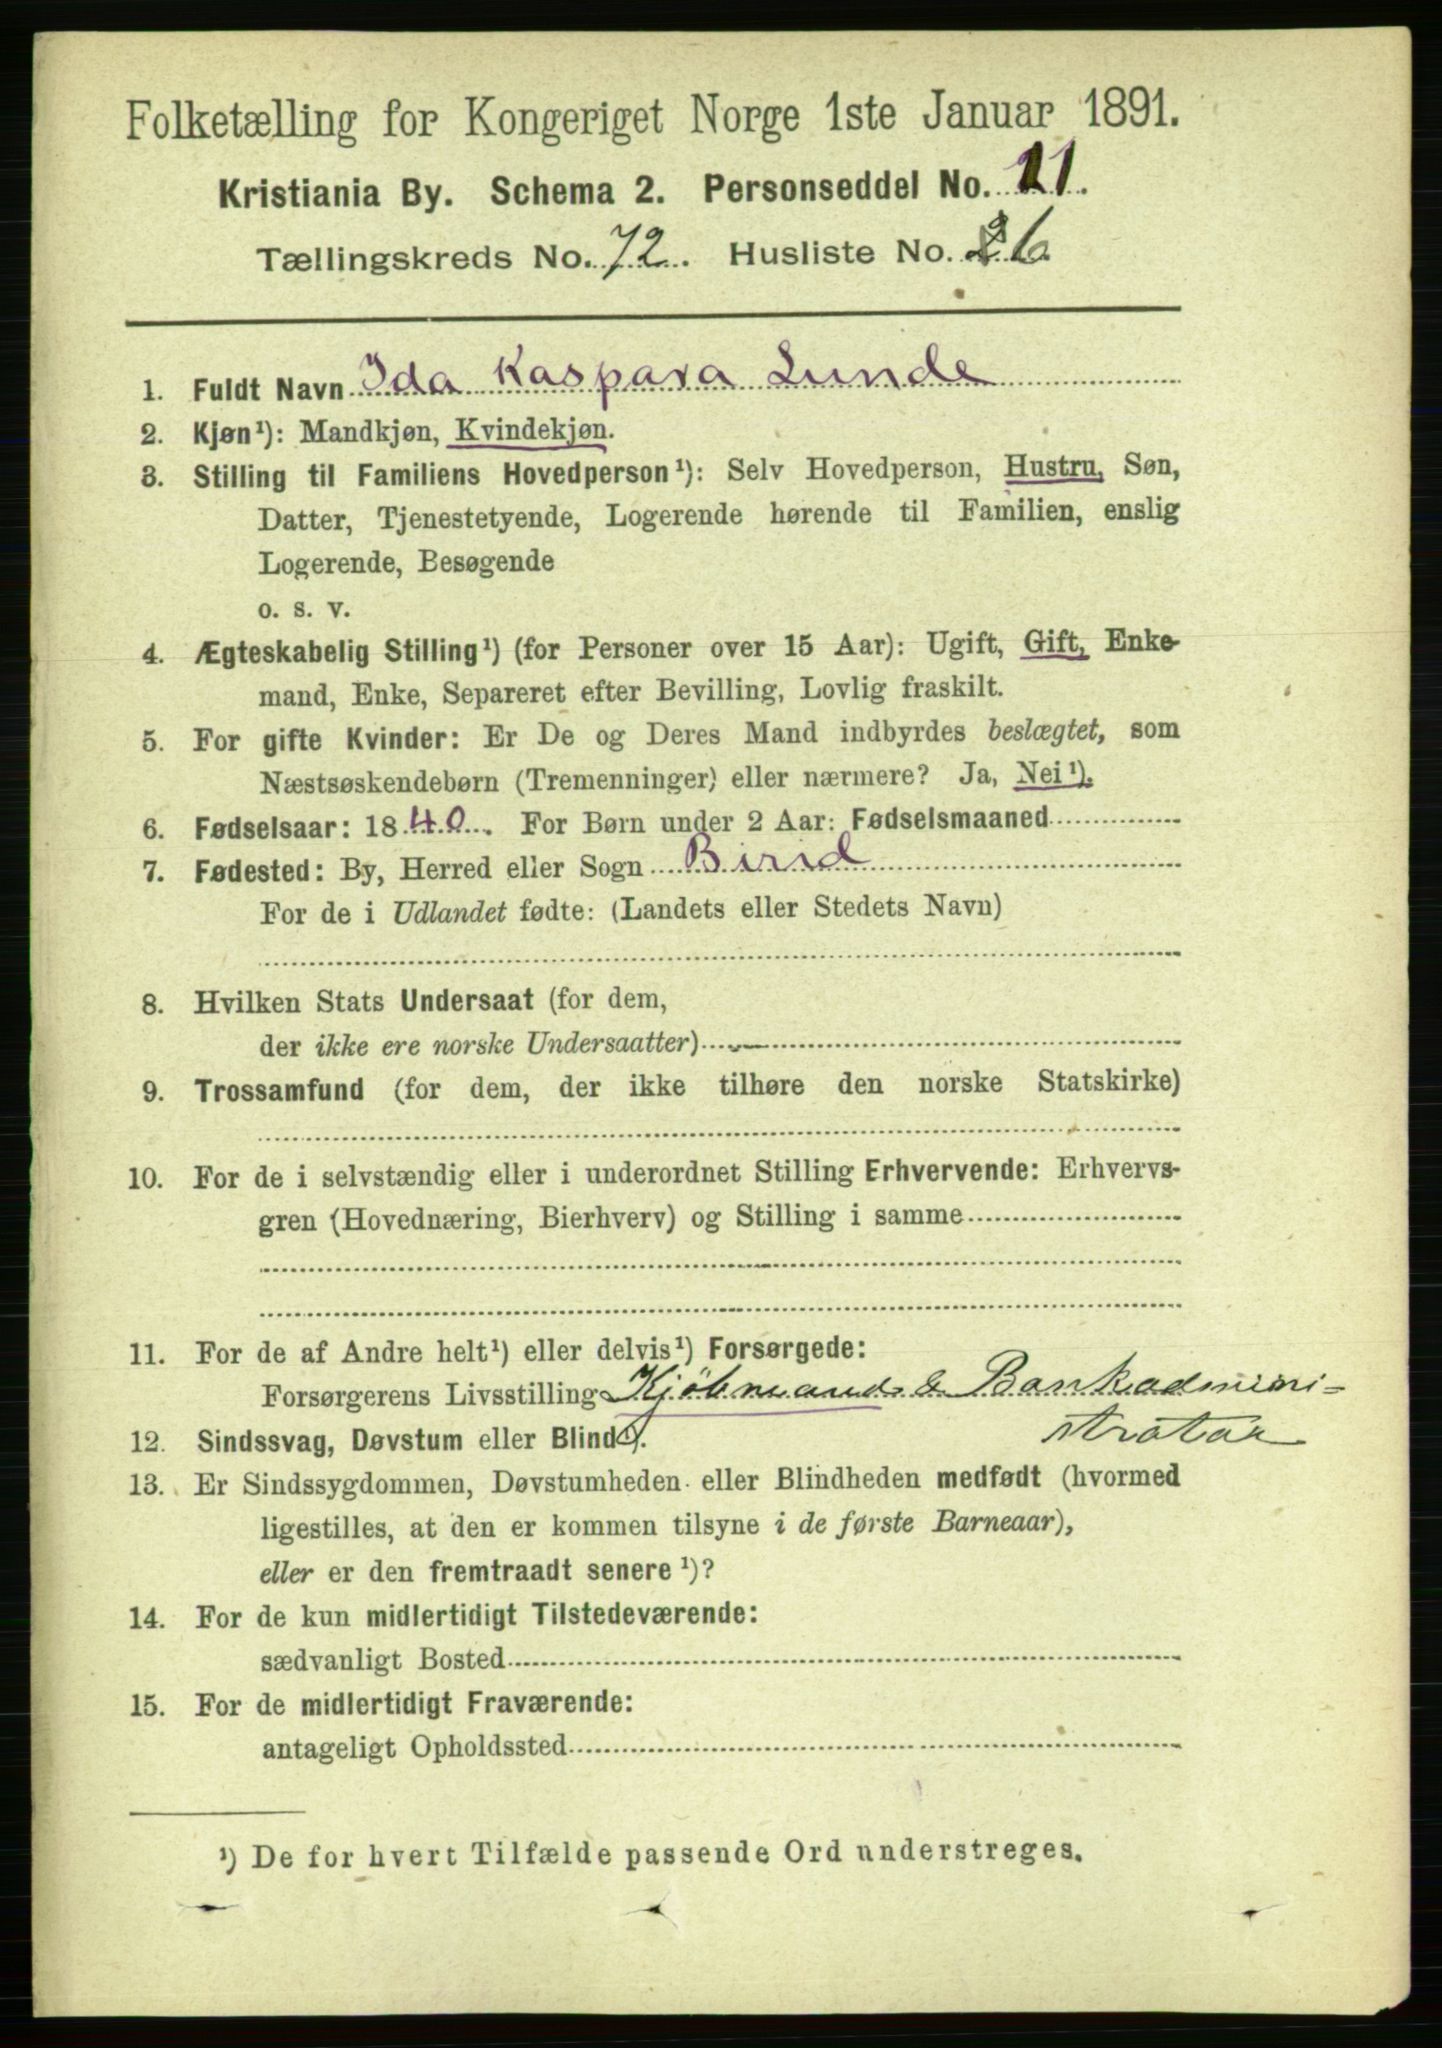 Folketælling for Kongeriget Norge 1ste Januar 1891.
Kristiania By. Schema 2. Personseddel No. 11.
Tællingskreds No. 72. Husliste No. 26
1. Fuldt Navn Ida Kaspara Lunde
2. Kjøn¹): Mandkjøn, Kvindekjøn.
3. Stilling til Familiens Hovedperson¹): Selv Hovedperson, Hustru, Søn,
Datter, Tjenestetyende, Logerende hørende til Familien, enslig
Logerende, Besøgende
o. s. v.
4. Ægteskabelig Stilling¹) (for Personer over 15 Aar): Ugift, Gift, Enke-
mand, Enke, Separeret efter Bevilling, Lovlig fraskilt.
5. For gifte Kvinder: Er De og Deres Mand indbyrdes beslægtet, som
Næstsøskendebørn (Tremenninger) eller nærmere? Ja, Nei¹).
6. Fødselsaar: 1840. For Børn under 2 Aar: Fødselsmaaned
7. Fødested: By, Herred eller Sogn Birid
For de i Udlandet fødte: (Landets eller Stedets Navn)
8. Hvilken Stats Undersaat (for dem,
der ikke ere norske Undersaatter)
9. Trossamfund (for dem, der ikke tilhøre den norske Statskirke)
10. For de i selvstændig eller i underordnet Stilling Erhvervende: Erhvervs-
gren (Hovednæring, Bierhverv) og Stilling i samme
11. For de af Andre helt¹) eller delvis¹) Forsørgede:
Forsørgerens Livsstilling Kjöbmand & Bankadmini=
stratör
12. Sindssvag, Døvstum eller Blind¹).
13. Er Sindssygdommen, Døvstumheden eller Blindheden medfødt (hvormed
ligestilles, at den er kommen tilsyne i de første Barneaar),
eller er den fremtraadt senere¹)?
14. For de kun midlertidigt Tilstedeværende:
sædvanligt Bosted
15. For de midlertidigt Fraværende:
antageligt Opholdssted
¹) De for hvert Tilfælde passende Ord understreges.